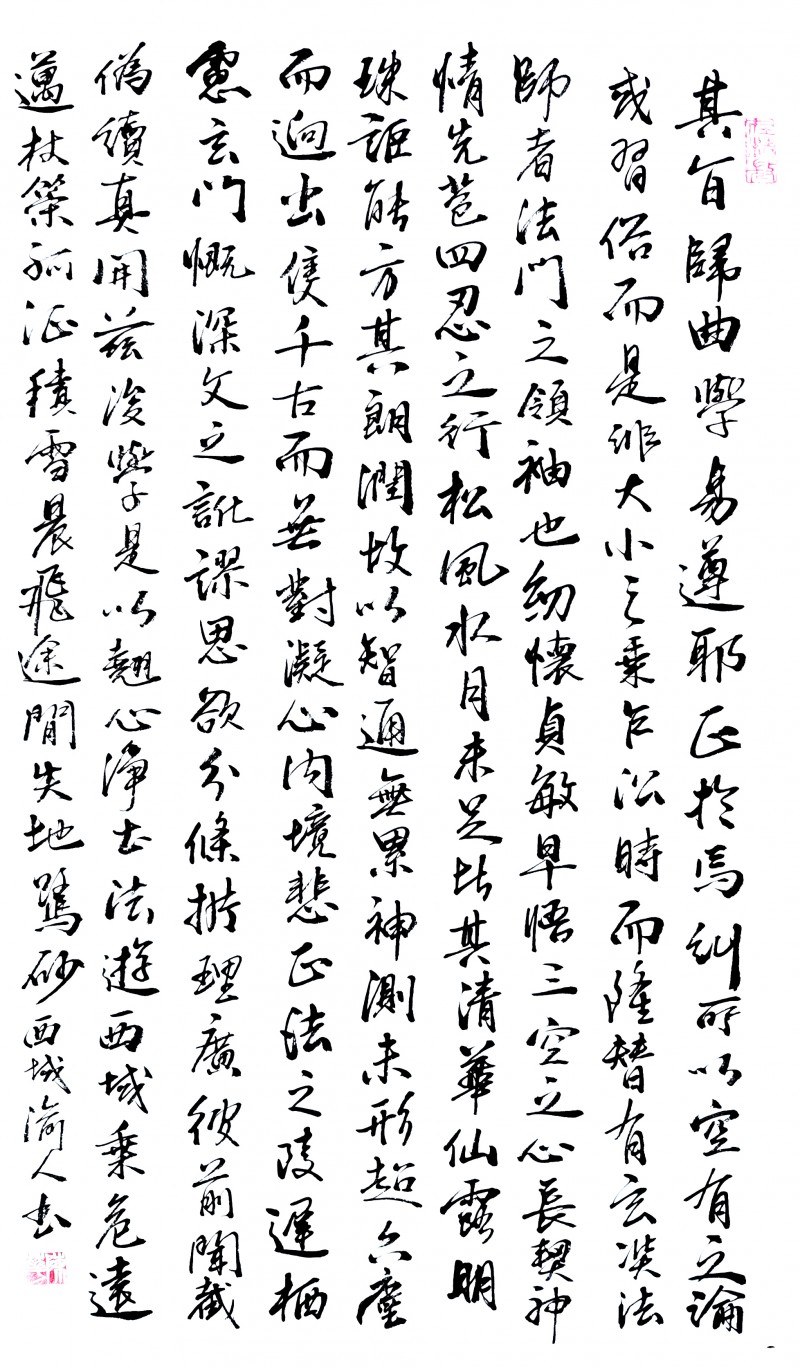 其旨歸曲學易遵耶正於焉糾所以空有之論
或習俗而是非大小之乘乍沿時而隆替有玄奘法
師者法門之領袖也幼懷貞敏早悟三空之心長契神
情先苞四忍之行松風水月未足比其清華仙露明
珠詎能方其朗潤故以智通無累神測未形超六塵
而迥出隻千古而無對凝心內境悲正法之陵遲栖
慮玄門慨深文之訛謬思欲分條析理廣彼前聞截
偽續真開茲後學是以翹心淨土法遊西域乘危遠
邁杖策孤征積雪晨飛途閒失地驚砂西域渝人書